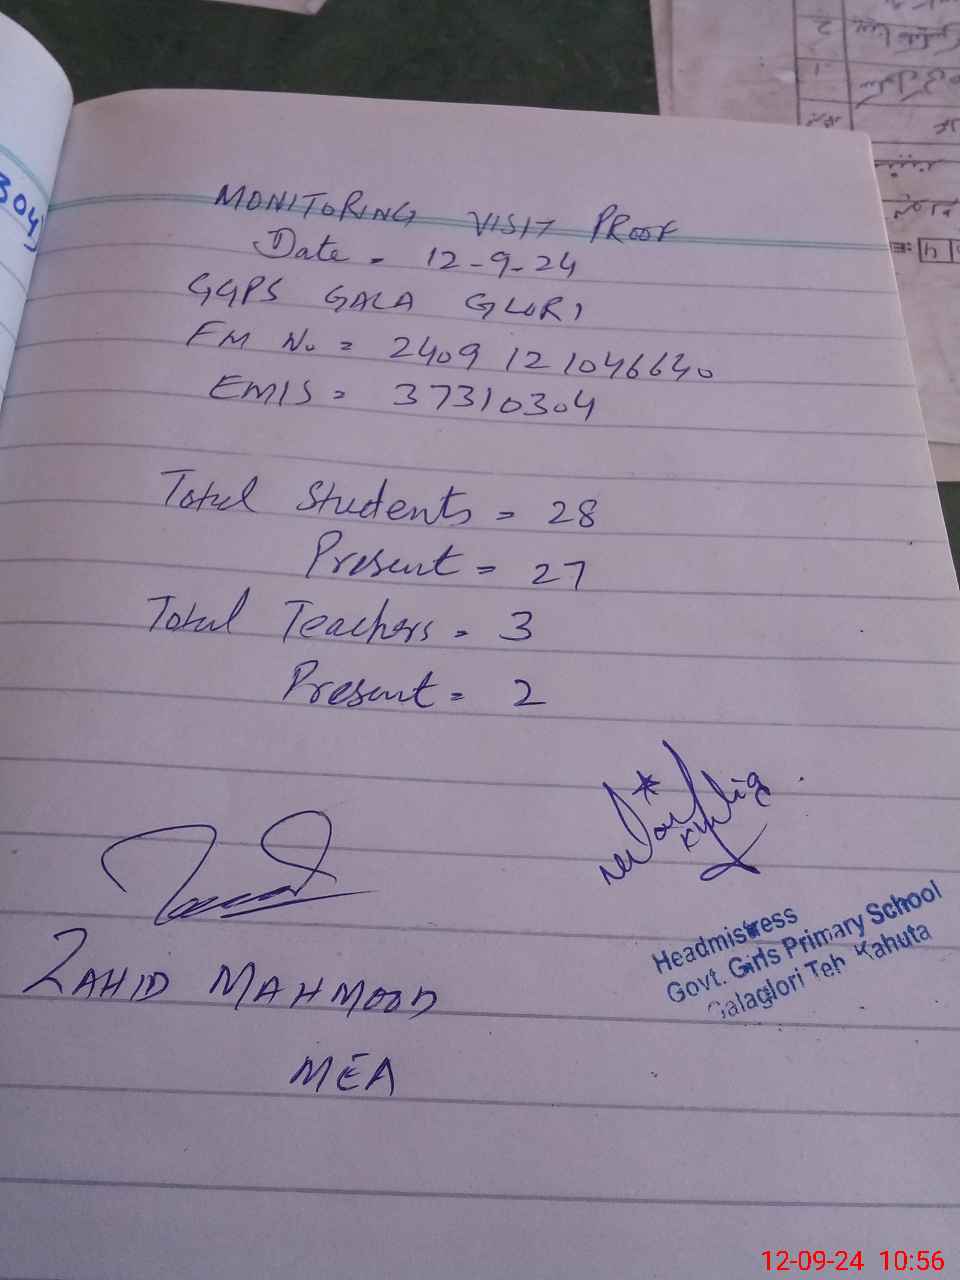 304)
MONITORING VISIT PROOF
Date = 12-9-24
GGPS GALA GLORI
FM No = 2409 121046640
EMIS = 37310304
Total Students = 28
Present = 27
Total Teachers = 3
Present = 2
ZAHID MAHMOOD
MEA
Headmistress
Govt. Girls Primary School
Galaglori Teh Kahuta
12-09-24 10:56